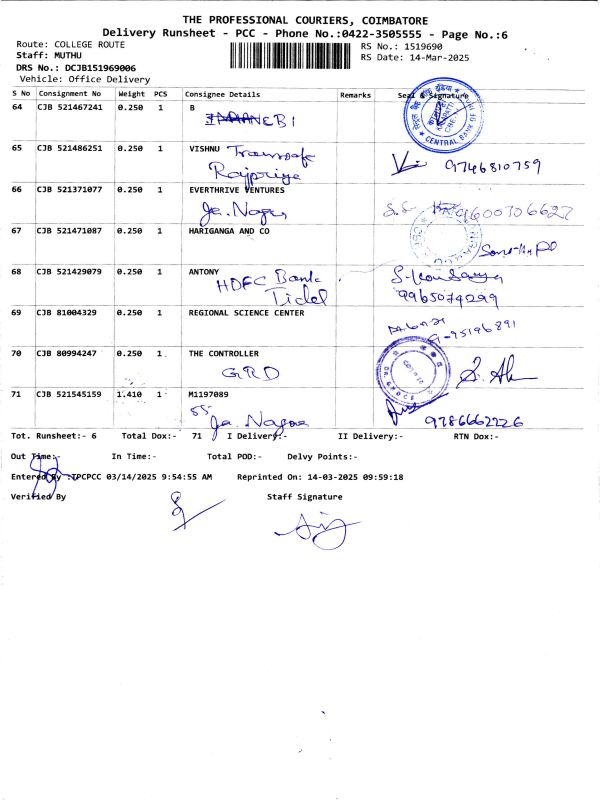 THE PROFESSIONAL COURIERS, COIMBATORE
Delivery Runsheet - PCC - Phone No.:0422-3505555 - Page No.:6
Route: COLLEGE ROUTE
RS No.: 1519690
Staff: MUTHU
RS Date: 14-Mar-2025
DRS No.: DCJB151969006
Vehicle: Office Delivery
S No Consignment No Weight PCS Consignee Details Remarks Seal & Signature
64 CJB 521467241 0.250 1 B
CBI
CENTRAL BANK OF
65 CJB 521486251 0.250 1 VISHNU
Rajpriya
9746810759
66 CJB 521371077 0.250 1 EVERTHRIVE VENTURES
Ja. Nagar
9600706627
67 CJB 521471087 0.250 1 HARIGANGA AND CO
68 CJB 521429079 0.250 1 ANTONY
HDFC Bank
Tidel
9965074299
69 CJB 81004329 0.250 1 REGIONAL SCIENCE CENTER
70 CJB 80994247 0.250 1 THE CONTROLLER
GRD
71 CJB 521545159 1.410 1 M1197089
Ja. Nagar
9786662226
Tot. Runsheet:- 6 Total Dox:- 71 I Delivery:- II Delivery:- RTN Dox:-
Out Time:- In Time:- Total POD:- Delvy Points:-
Entered By :TPCPCC 03/14/2025 9:54:55 AM Reprinted On: 14-03-2025 09:59:18
Verified By Staff Signature